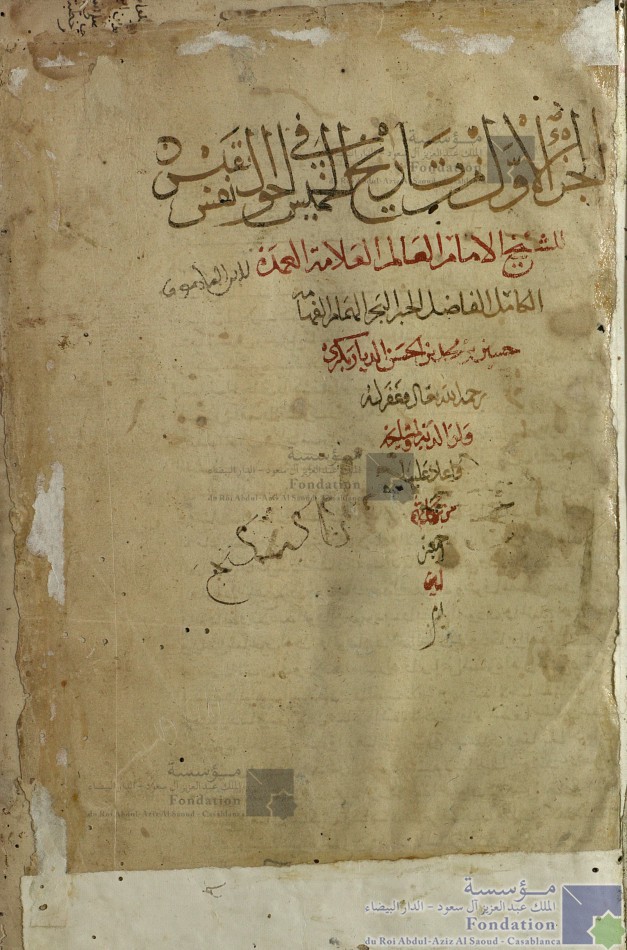 الجزء الأول من تاريخ الخميس في احوال نفس
نفيس
للشيخ الامام العالم العلامة العمدة
الكامل الفاضل الحبر البحر الهمام الفهامه
حسين بن محمد بن الحسن الديار بكري
رحمه الله تعالى وغفر له
ولوالديه ولمشايخه
واعاد علينا
من بركاته
امين
امين
مؤسسة
الملك عبد العزيز آل سعود - الدار البيضاء
Fondation
du Roi Abdul-Aziz Al Saoud - Casablanca
مؤسسة
الملك عبد العزيز آل سعود - الدار البيضاء
Fondation
du Roi Abdul-Aziz Al Saoud - Casablanca
مؤسسة
الملك عبد العزيز آل سعود - الدار البيضاء
Fondation
du Roi Abdul-Aziz Al Saoud - Casablanca